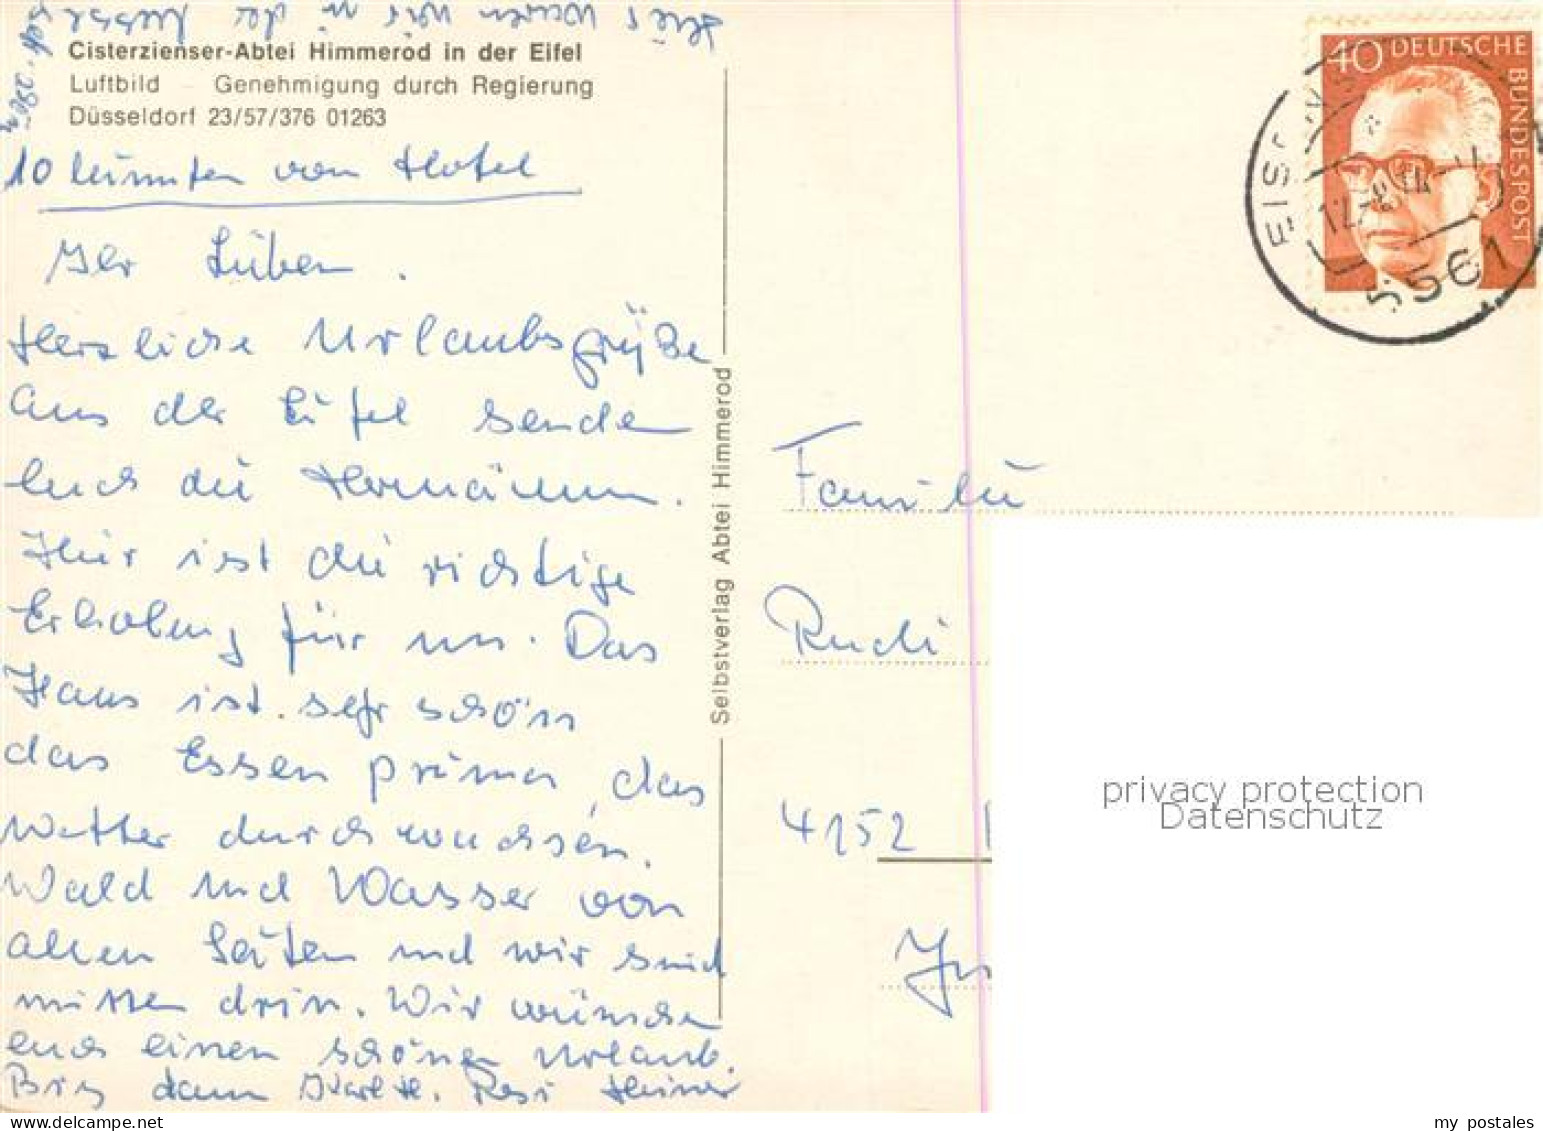 Hier waren wir in der Messe
Cisterzienser-Abtei Himmerod in der Eifel
Luftbild – Genehmigung durch Regierung
Düsseldorf 23/57/376 01263
10 Minuten von Hotel
Ihr Lieben.
Herzliche Urlaubsgrüße
aus der Eifel senden
Euch die
Hier ist die richtige
Erholung für uns. Das
Haus ist sehr schön
das Essen prima, das
Wetter durchwachsen.
Wald und Wasser von
allen Seiten und wir sind
mitten drin. Wir wünschen
euch einen schönen Urlaub.
Bis dann Resi Heiner
Selbstverlag Abtei Himmerod
40 DEUTSCHE
BUNDESPOST
5561
Familie
Rudi
4152
privacy protection
Datenschutz
my postales